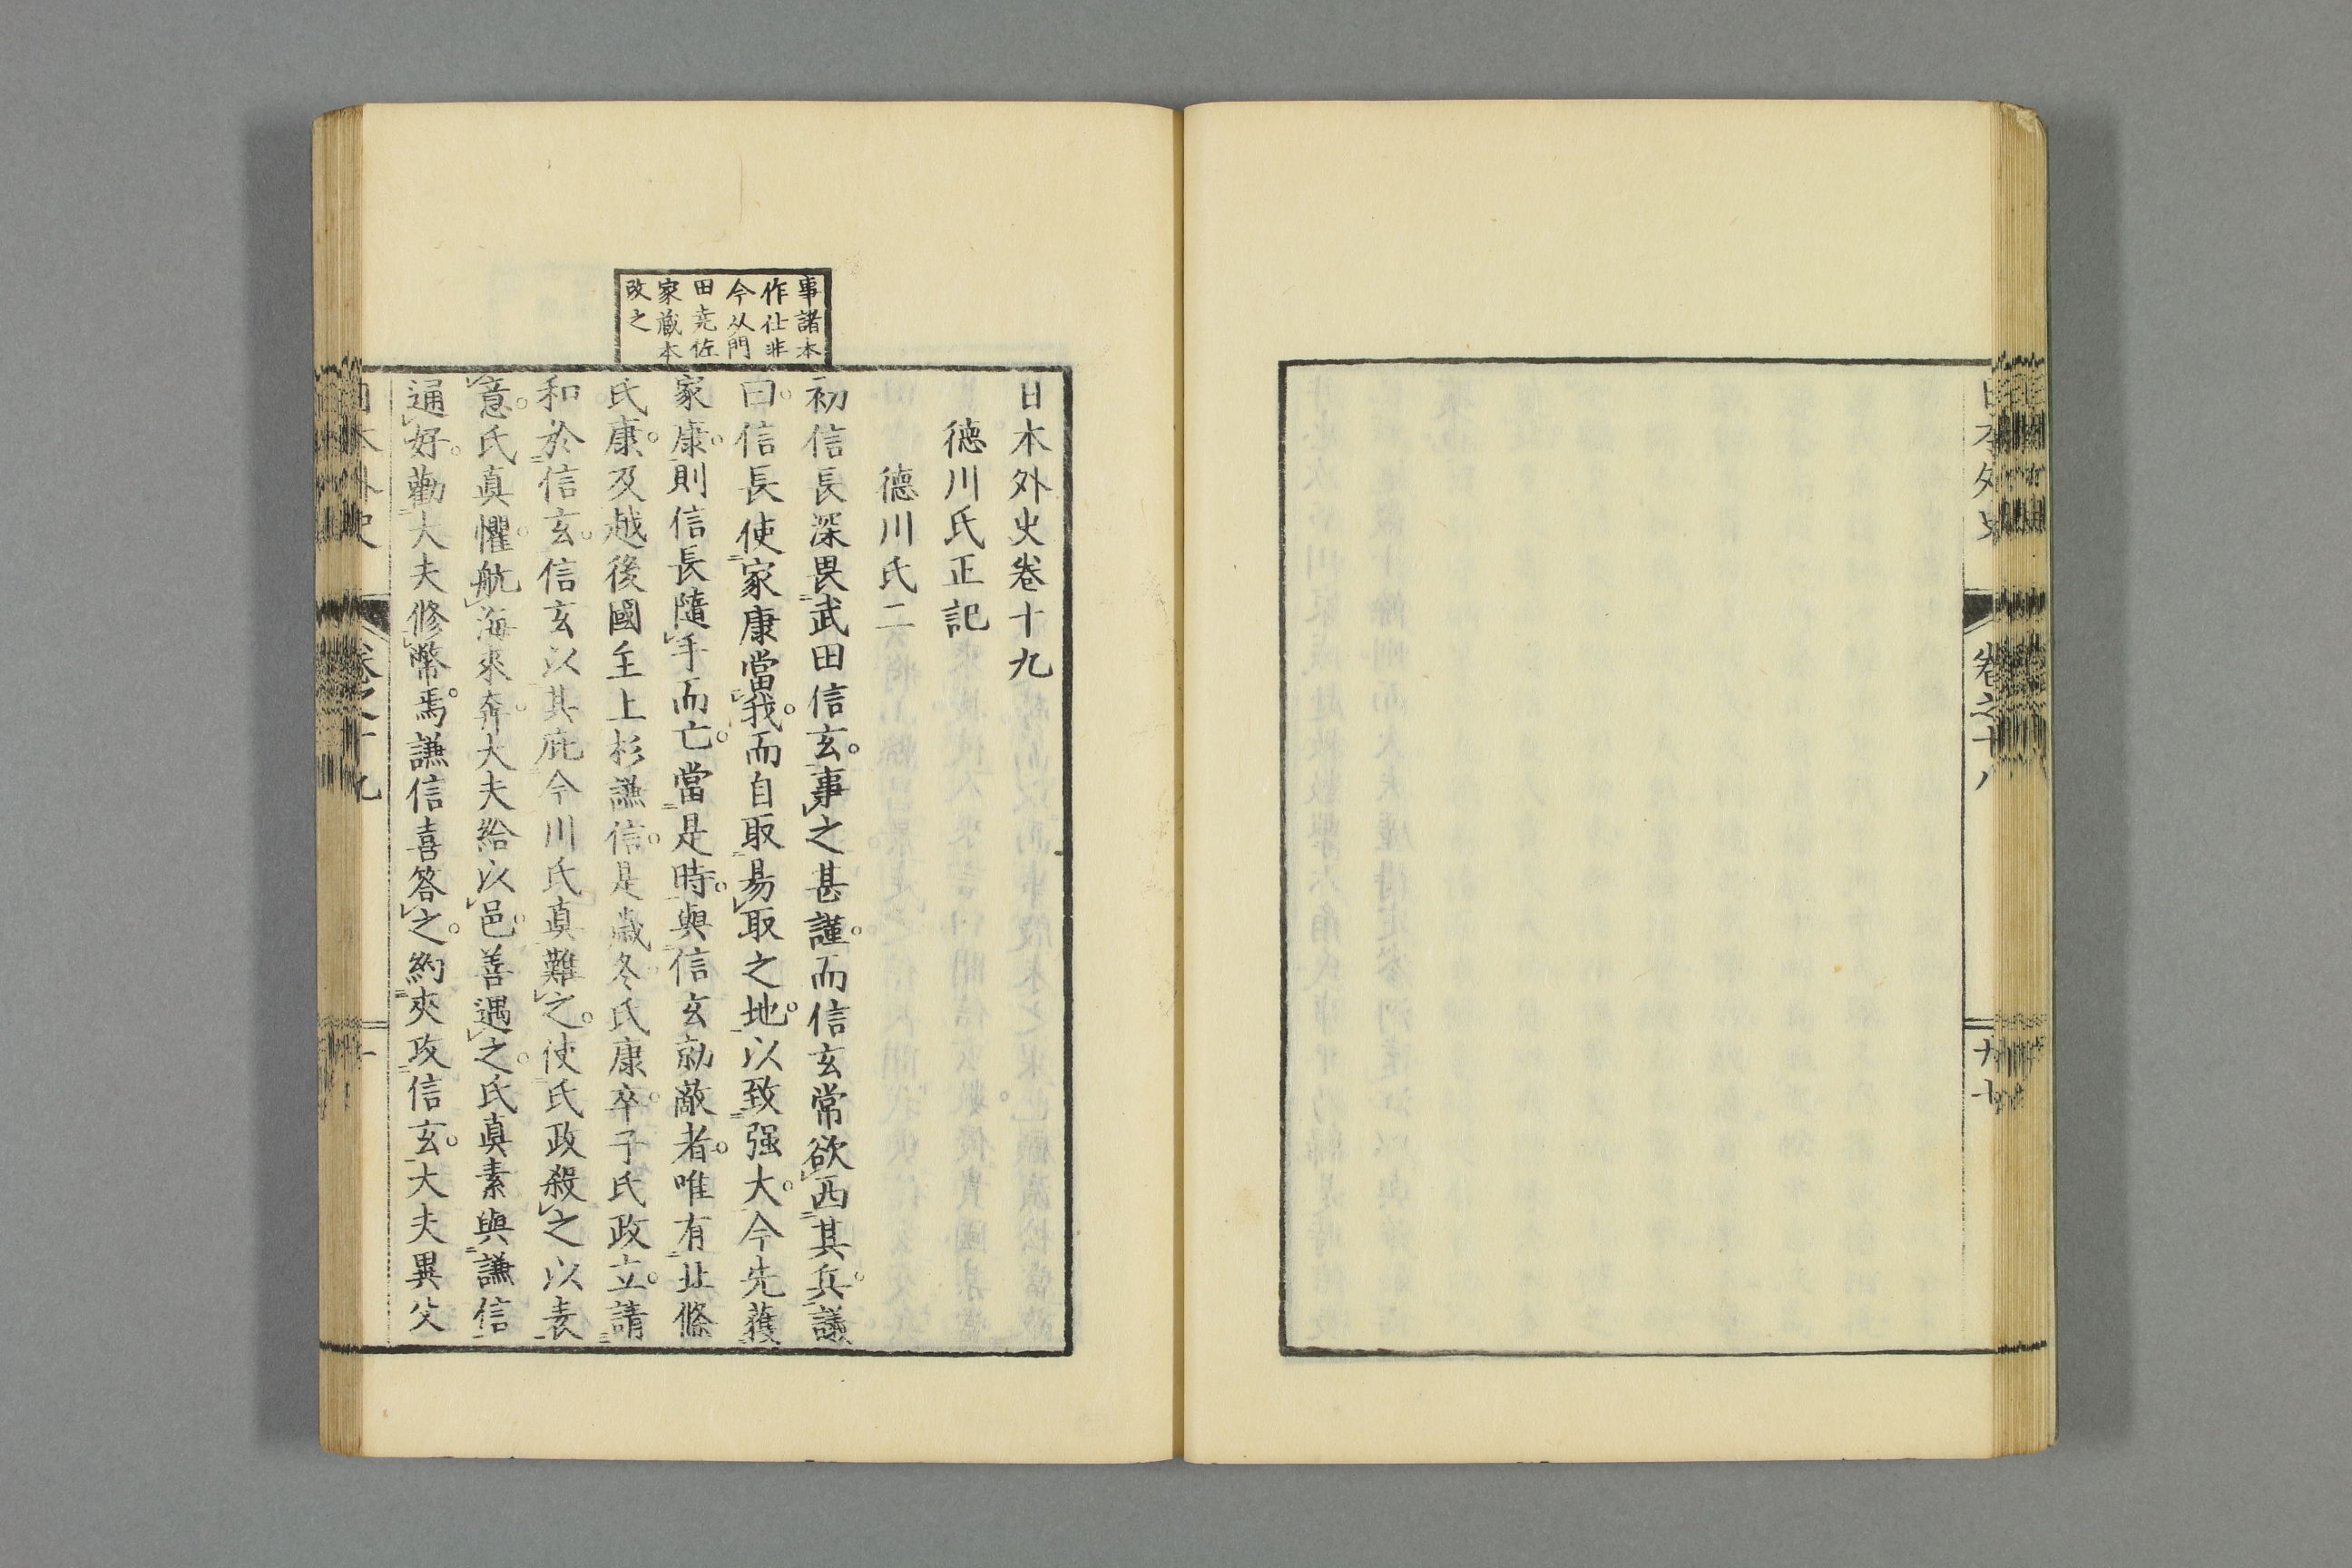 日本外史
卷之十八
九十
日本外史卷十九
德川氏正記
德川氏二
事諸本
作仕非
今从門
田堯佐
家藏本
改之
初信長深畏武田信玄。事之甚謹。而信玄常欲西其兵。議
曰。信長使家康當我。而自取易取之地。以致强大。今先獲
家康。則信長隨手而亡。當是時。與信玄勍敵者。唯有北條
氏康。及越後國主上杉謙信。是歲冬。氏康卒。子氏政立。請
和於信玄。信玄以其庇今川氏眞難之。使氏政殺之以表
意。氏眞懼。航海來奔。大夫給以邑。善遇之。氏眞素與謙信
通好。勸大夫修幣焉。謙信喜答之。約夾攻信玄。大夫異父
日本外史
卷之十九
一